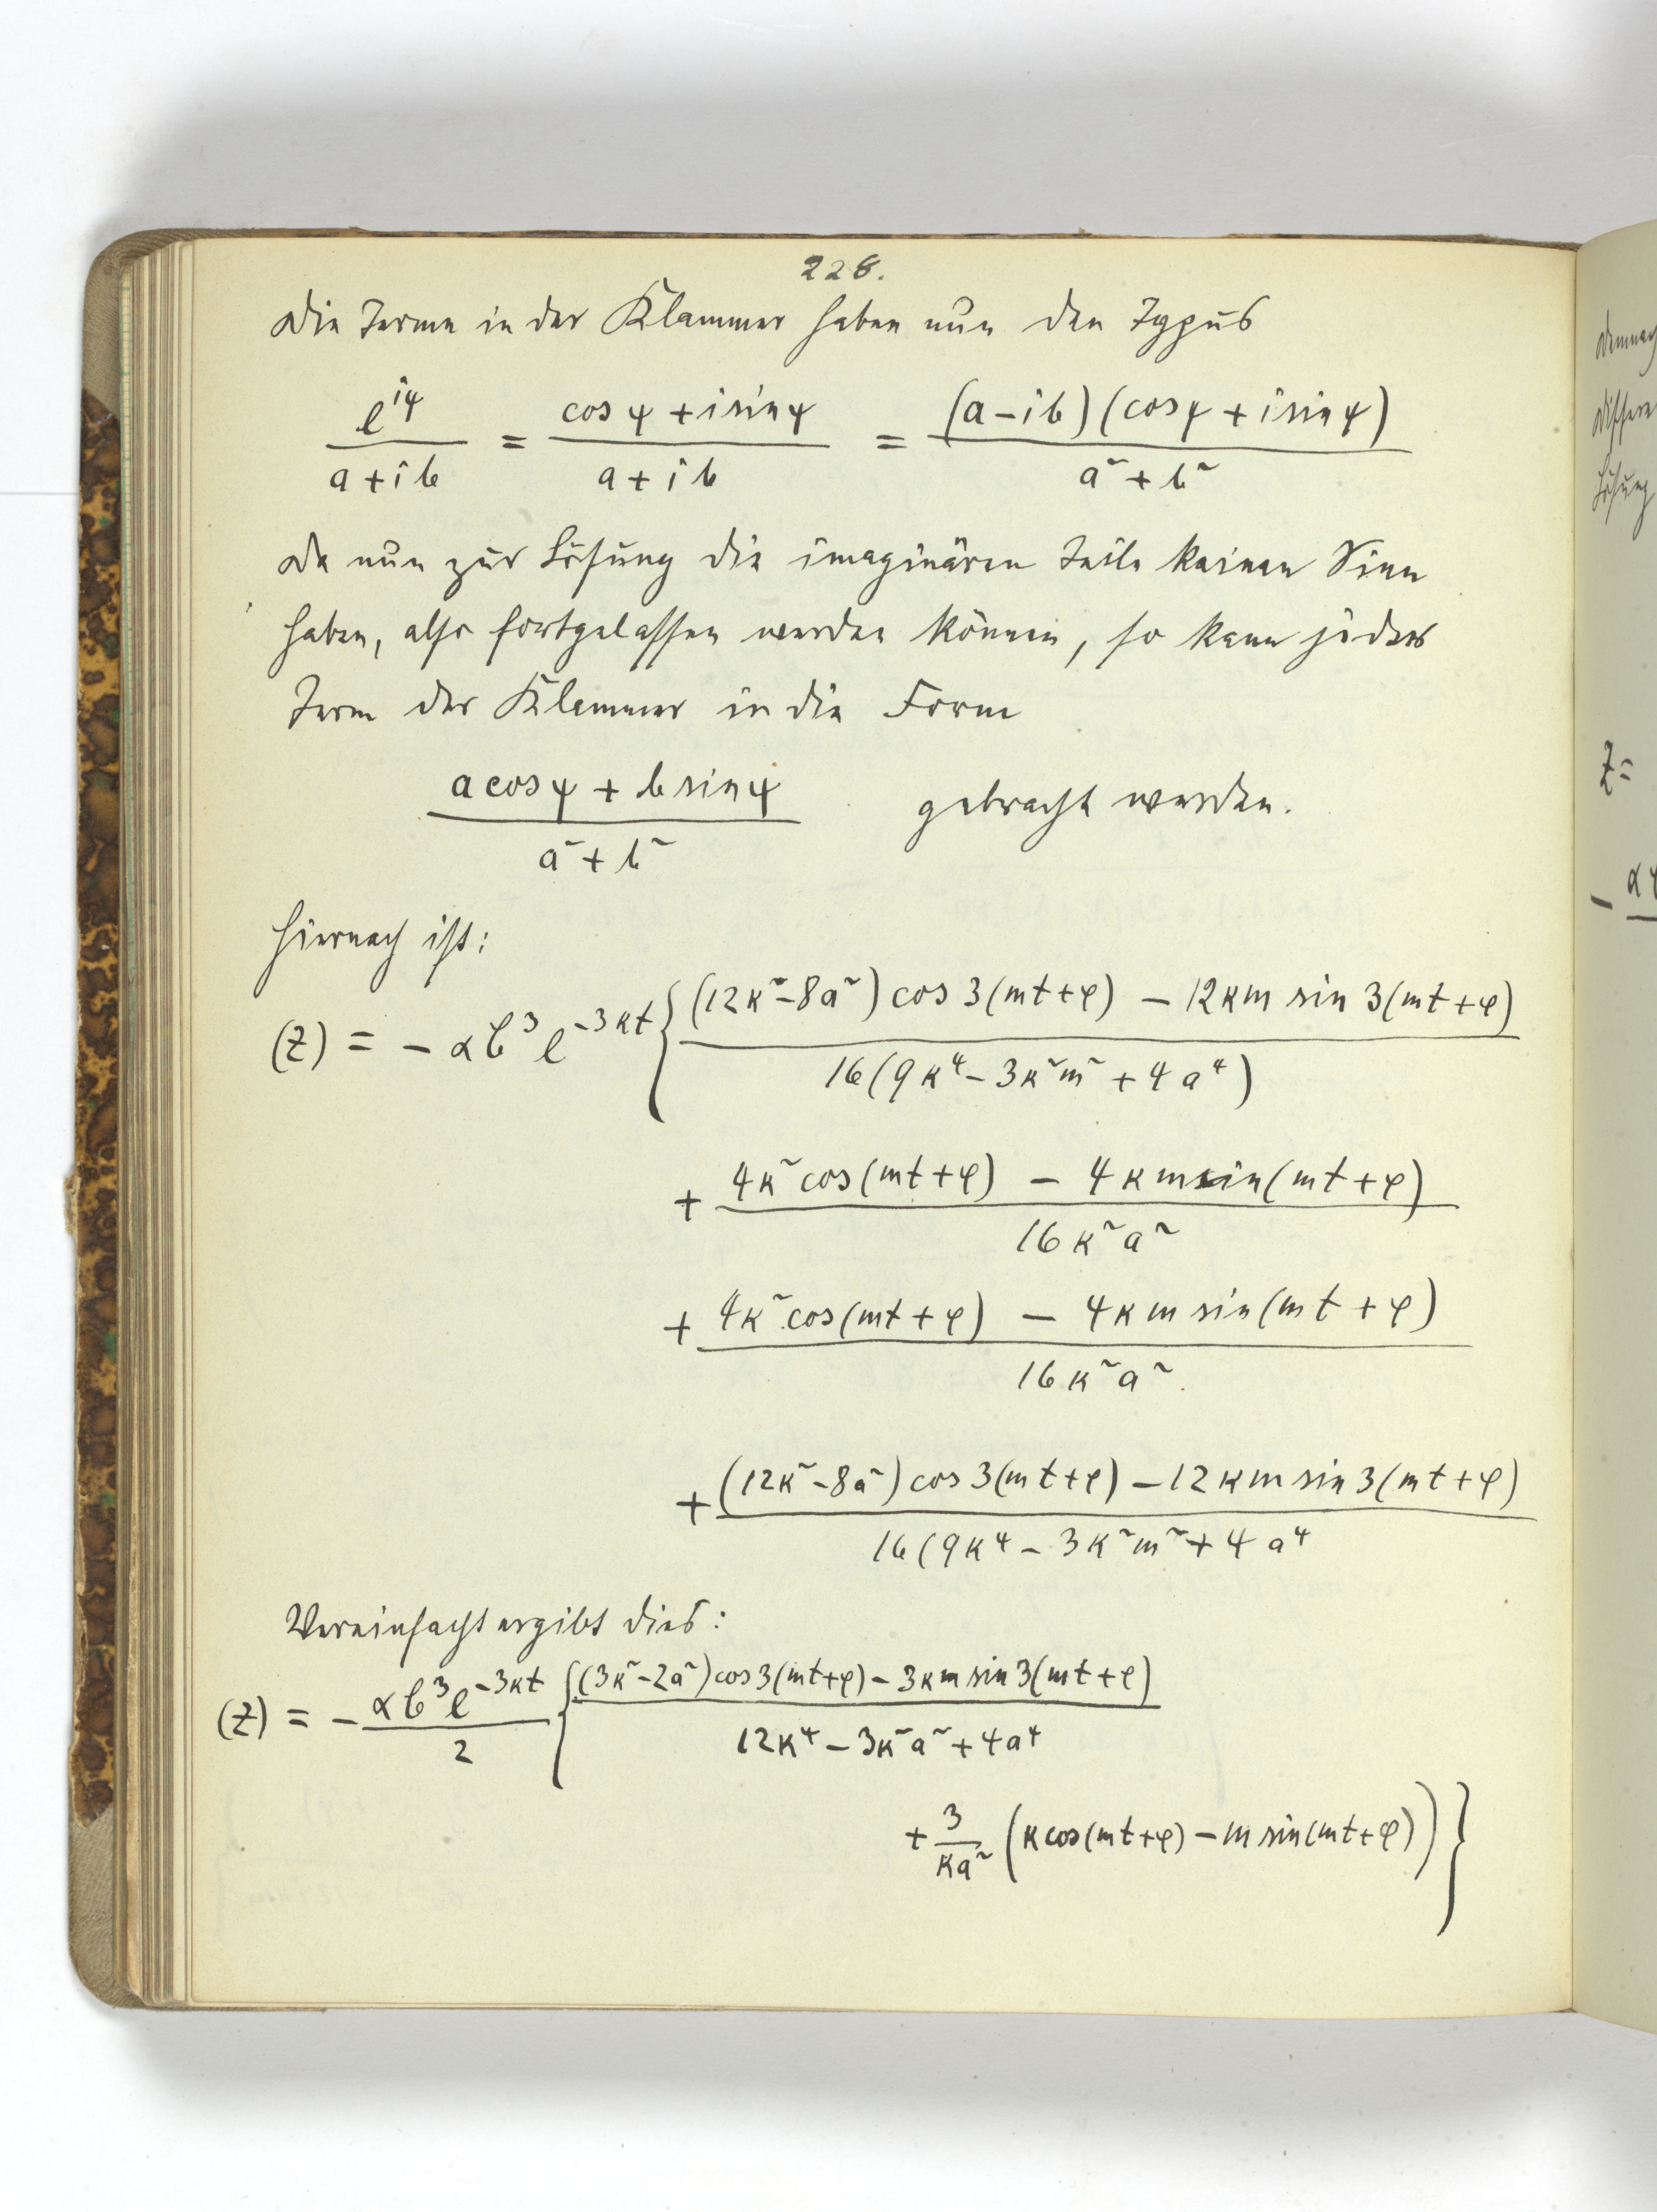 228.
Die Terme in der Klammer haben nun den Typus
e^{iψ}/(a+ib) = (cos ψ + i sin ψ)/(a+ib) = (a−ib)(cos ψ + i sin ψ)/(a²+b²)
Da nun zur Lösung die imaginären Teile keinen Sinn
haben, also fortgelassen werden können, so kann jeder
Term der Klammer in die Form
(a cos ψ + b sin ψ)/(a²+b²) gebracht werden.
Hiernach ist:
(z) = − α b³ e^{−3κt} { ((12κ²−8a²) cos 3(mt+φ) − 12κm sin 3(mt+φ))/(16(9κ⁴−3κ²m²+4a⁴))
+ (4κ² cos(mt+φ) − 4κm sin(mt+φ))/(16κ²a²)
+ (4κ² cos(mt+φ) − 4κm sin(mt+φ))/(16κ²a²)
+ ((12κ²−8a²) cos 3(mt+φ) − 12κm sin 3(mt+φ))/(16(9κ⁴−3κ²m²+4a⁴
Vereinfacht ergibt dies:
(z) = − (α b³ e^{−3κt})/2 { ((3κ²−2a²) cos 3(mt+φ) − 3κm sin 3(mt+φ))/(12κ⁴−3κ²a²+4a⁴)
+ 3/(κa²) (κ cos(mt+φ) − m sin(mt+φ)) }
z=